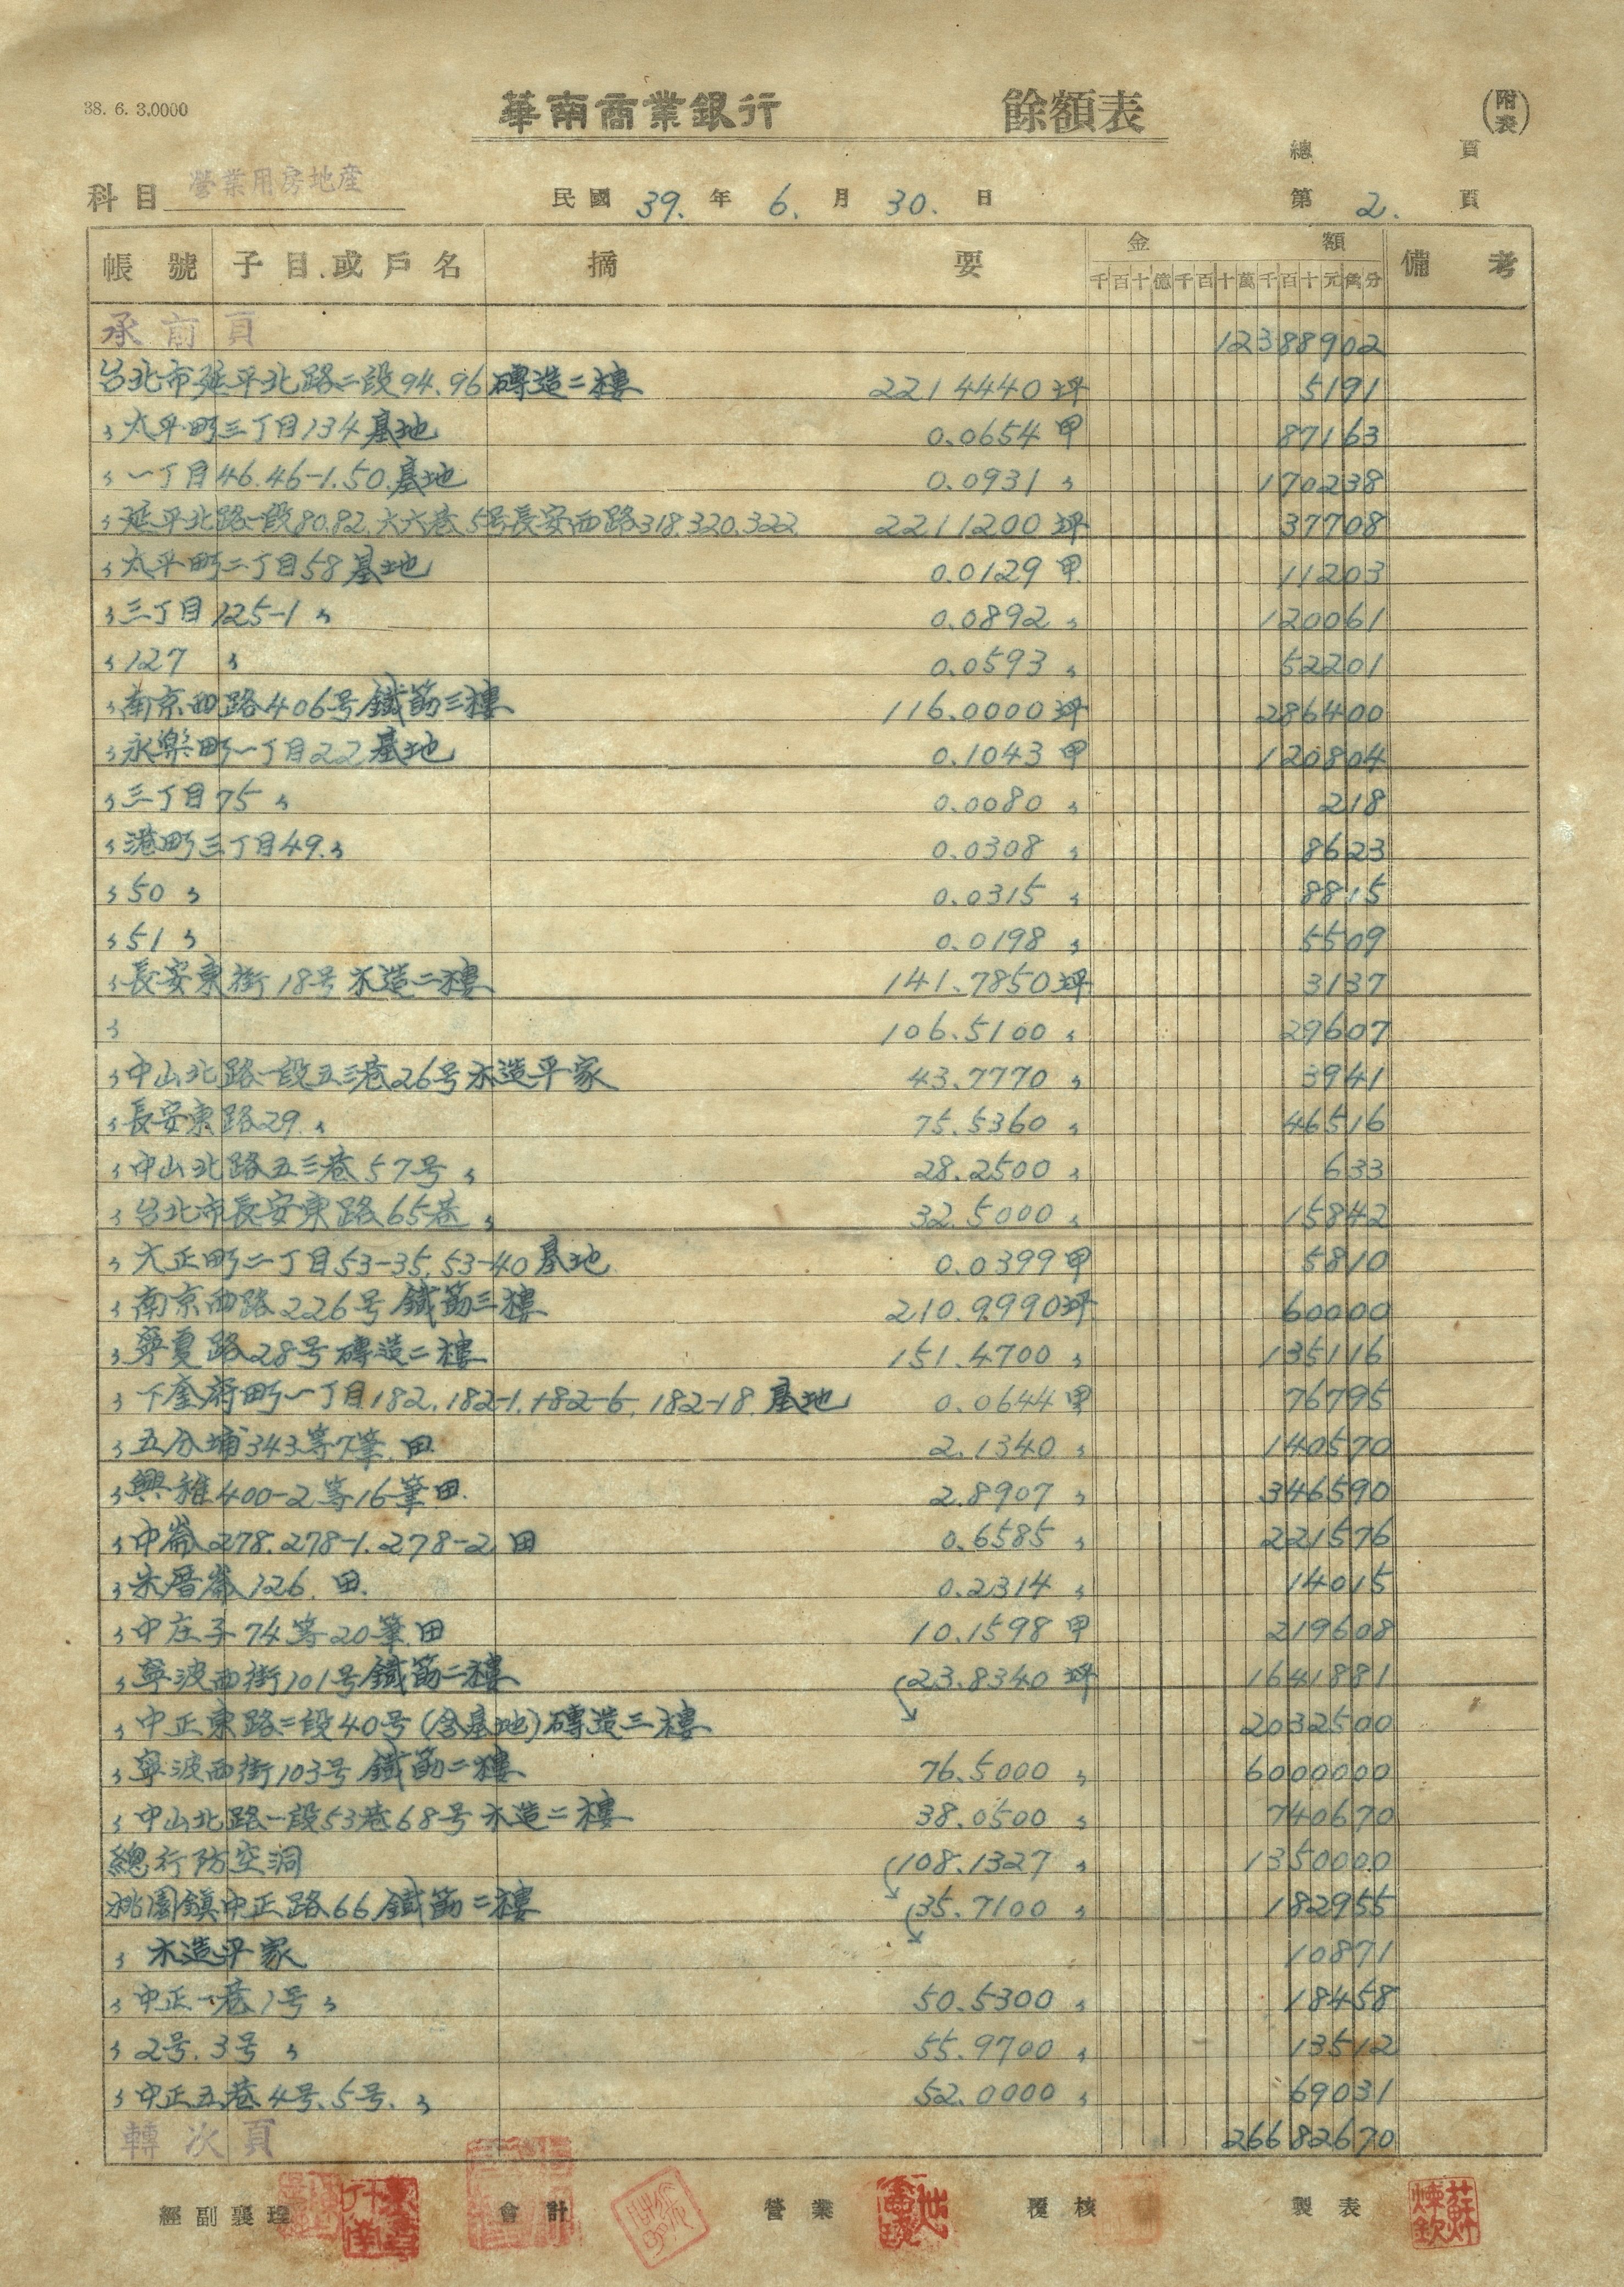 38. 6. 3.0000
華南商業銀行 餘額表 (附表)
總 頁
科目 營業用房地産 民國 39. 年 6. 月 30. 日 第 2. 頁
帳號 子目或戶名 摘要 金額 備考
千百十億千百十萬千百十元角分
承前頁 12388902
台北市延平北路二段94.96磚造二樓 221.4440坪 5191
〃太平町三丁目134基地 0.0654甲 87163
〃一丁目46.46-1.50.基地 0.0931〃 170238
〃延平北路一段80.82.六六巷5号長安西路318.320.322 221.1200坪 37708
〃太平町二丁目58基地 0.0129甲 11203
〃三丁目125-1〃 0.0892〃 120061
〃127〃 0.0593〃 52201
〃南京西路406号鐵筋三樓 116.0000坪 286400
〃永樂町一丁目22基地 0.1043甲 120804
〃三丁目75〃 0.0080〃 218
〃港町三丁目49.〃 0.0308〃 8623
〃50〃 0.0315〃 8815
〃51〃 0.0198〃 5509
〃長安東街18号木造二樓 141.7850坪 3137
〃 106.5100〃 29607
〃中山北路一段五三巷26号木造平家 43.7770〃 3941
〃長安東路29.〃 75.5360〃 46516
〃中山北路五三巷57号〃 28.2500〃 633
〃台北市長安東路65巷〃 32.5000〃 15842
〃大正町二丁目53-35.53-40基地 0.0399甲 5810
〃南京西路226号鐵筋三樓 210.9990坪 60000
〃寧夏路28号磚造二樓 151.4700〃 135116
〃下奎府町一丁目182.182-1.182-6.182-18.基地 0.0644甲 76795
〃五分埔343等7筆.田 2.1340〃 140570
〃興雅400-2等16筆田. 2.8907〃 346590
〃中崙278.278-1.278-2田 0.6585〃 221576
〃朱厝崙126.田. 0.2314〃 14015
〃中庄子74等20筆田 10.1598甲 219608
〃寧波西街101号鐵筋二樓 23.8340坪 1641881
〃中正東路二段40号(含基地)磚造三樓 2032500
〃寧波西街103号鐵筋二樓 76.5000〃 6000000
〃中山北路一段53巷68号木造二樓 38.0500〃 740670
總行防空洞 108.1327〃 1350000
桃園鎮中正路66鐵筋二樓 35.7100〃 182955
〃木造平家 10871
〃中正一巷1号〃 50.5300〃 18458
〃2号.3号〃 55.9700〃 13512
〃中正五巷4号、5号.〃 52.0000〃 69031
轉次頁 26682670
經副襄理 會計 營業 覆核 製表 蘇煉欽